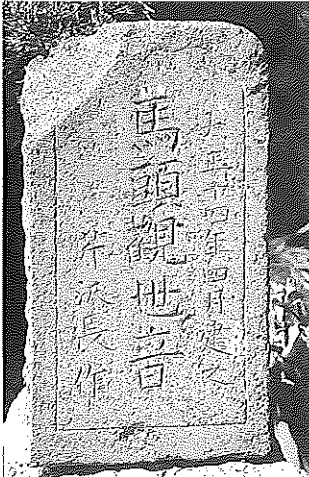 大正十四年四月建之
馬頭觀世音
長作